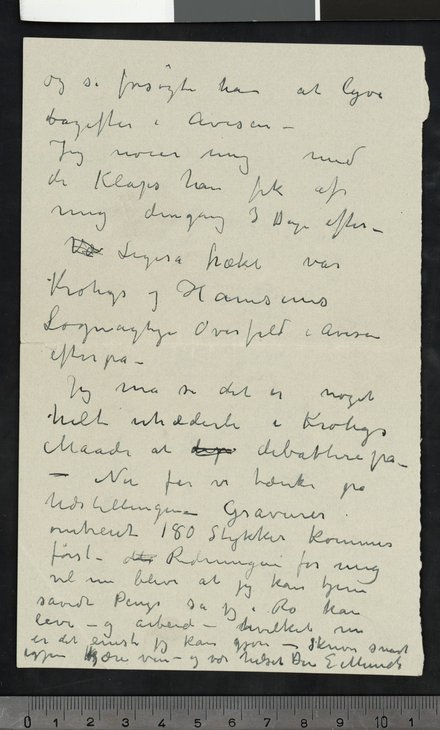 og så forsøgte han at lyve
bagefter i Avisen –
Jeg morer mig med
de Klaps han fik af
mig dengang 3 Dage efter –
Ligeså frækt var
Krohgs og Hansens
Løgnagtige Overfald i Avisen
efterpå –
Jeg må se det er noget
helt uhæderligt i Krohgs
Maade at debattere på –
– Nu får vi tænke på
Udstillingen – Gravurer
omtrent 180 Stykker kommer
først – Redningen for mig
vil nu blive at jeg kan tjene
såvidt Penge så jeg i Ro kan
leve – og arbeide – hvilket nu
er det eneste jeg kan gjøre – Skriver snart
igjen kjære ven – og vær hilset Din E. Munch
0 1 2 3 4 5 6 7 8 9 10 1